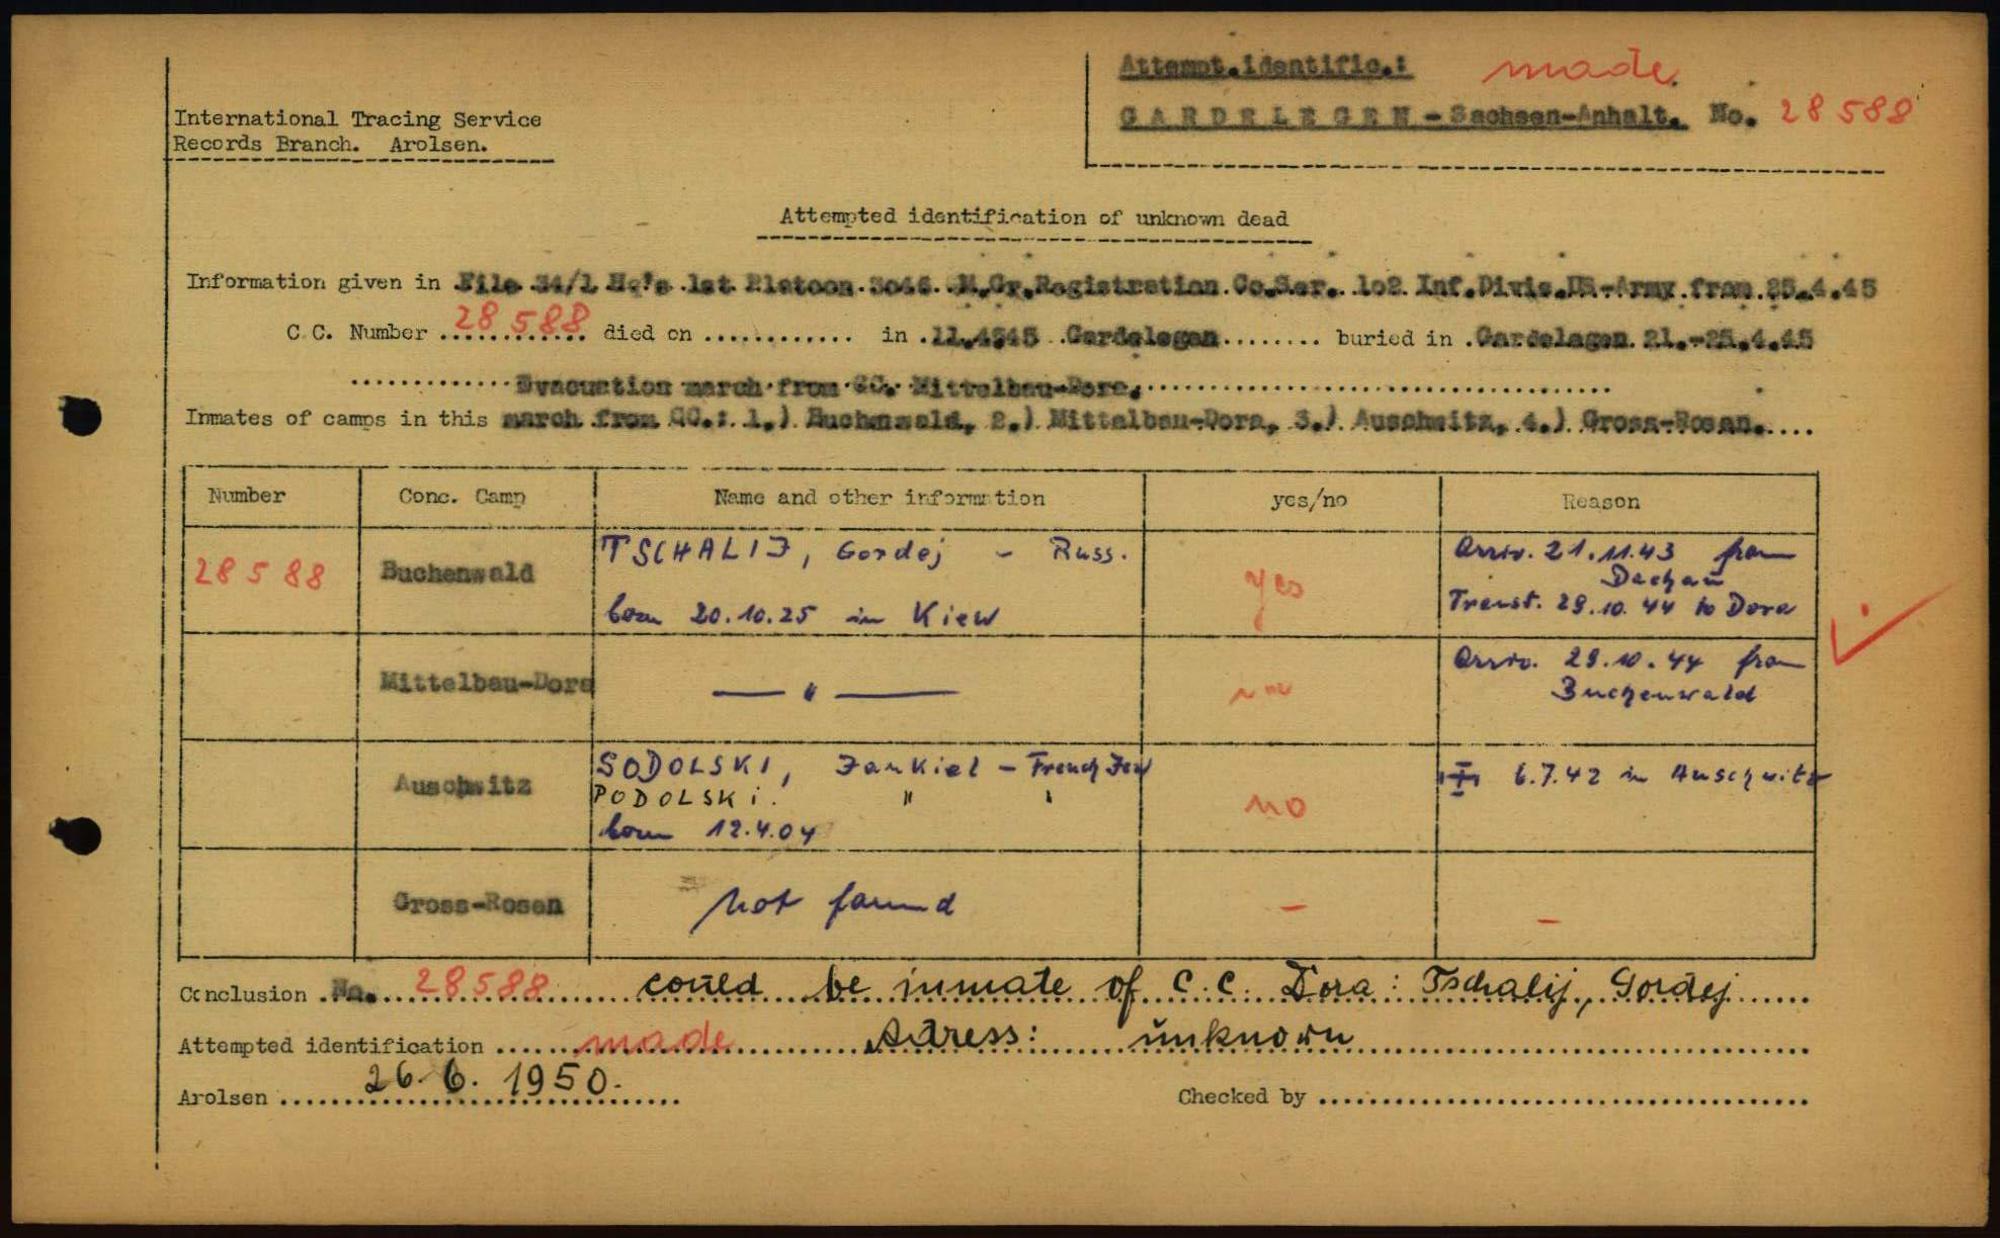 Attempt.identific.: made
GARDELEGEN - Sachsen-Anhalt. No. 28588
International Tracing Service
Records Branch. Arolsen.
Attempted identification of unknown dead
Information given in File 34/1 Hq's 1st Platoon 3046 M.Gr.Registration Co.Ser. 102 Inf.Divis.US-Army from 25.4.45
C.C. Number 28588 died on ............ in 11.4.45 Gardelegen ........ buried in Gardelegen 21.-25.4.45
Evacuation march from CC. Mittelbau-Dora.
Inmates of camps in this march from CC.: 1.) Buchenwald, 2.) Mittelbau-Dora, 3.) Auschwitz, 4.) Gross-Rosen.
Number Conc. Camp Name and other information yes/no Reason
28588 Buchenwald TSCHALIJ, Gordej - Russ. yes Arriv. 21.11.43 from Dachau
born 20.10.25 in Kiew Transt. 29.10.44 to Dora
Mittelbau-Dora — " — Arriv. 29.10.44 from
Buchenwald
Auschwitz SODOLSKI, Jankiel - French Jew no 6.7.42 in Auschwitz
PODOLSKi. " "
born 12.4.04
Gross-Rosen not found - -
Conclusion No. 28588 could be inmate of C.C. Dora: Tschalij, Gordej
Attempted identification made Adress: unknown
Arolsen 26.6.1950. Checked by